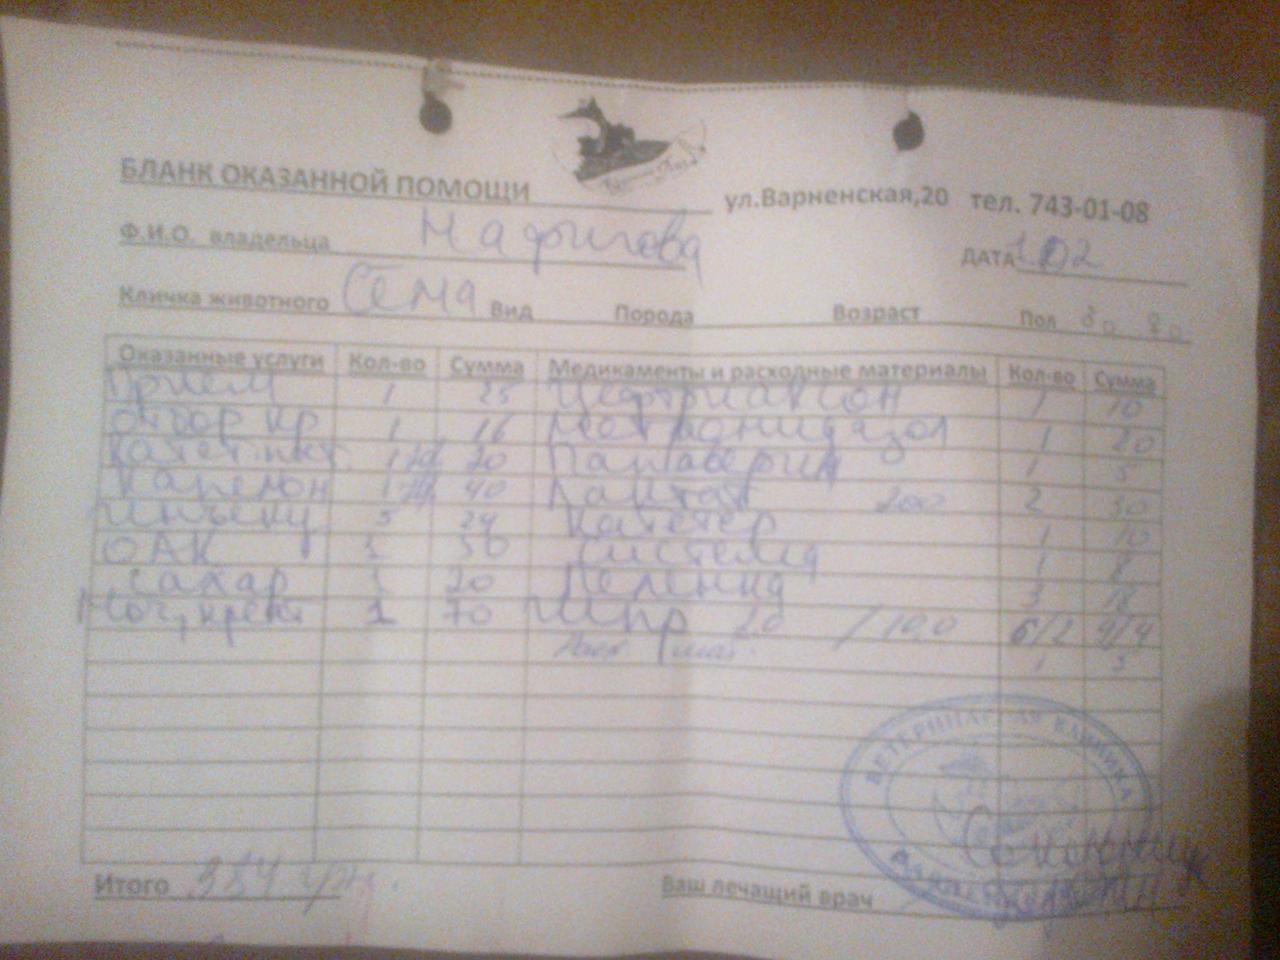 БЛАНК ОКАЗАННОЙ ПОМОЩИ ул.Варненская,20 тел. 743-01-08
Ф.И.О. владельца ДАТА 1.02
Кличка животного Сёма Вид Порода Возраст Пол
Оказанные услуги Кол-во Сумма Медикаменты и расходные материалы Кол-во Сумма
Приём 1 25 Цефтриаксон 1 10
отбор кр 1 16 Метронидазол 1 20
Катет. 1 20 Папаверин 1 5
Капельн 1 40 Лактат 200 2 30
Инъекц 5 Катетер 1 10
ОАК 1 50 Система 1 8
сахар 1 20 Пеленка 3 18
Моч, креат 1 70 Шпр 2.0 / 10,0 6/2 9/4
1 5
ВЕТЕРИНАРНАЯ КЛИНИКА
Итого 384 грн. Ваш лечащий врач